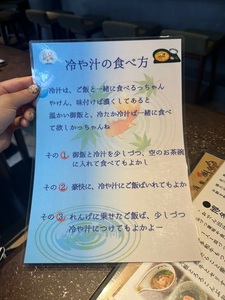 冷や汁の食べ方
冷汁は、ご飯と一緒に食べるっちゃん
やけん、味付けば濃くしてあると
温かい御飯と、冷たか冷汁ば一緒に食べ
て欲しかっちゃんね
その① 御飯と冷汁を少しづつ、空のお茶碗
に入れて食べてもよかし
その② 豪快に、冷や汁にご飯ばいれてもよか
その③ れんげに乗せたご飯ば、少しづつ
冷や汁につけてもよかよー